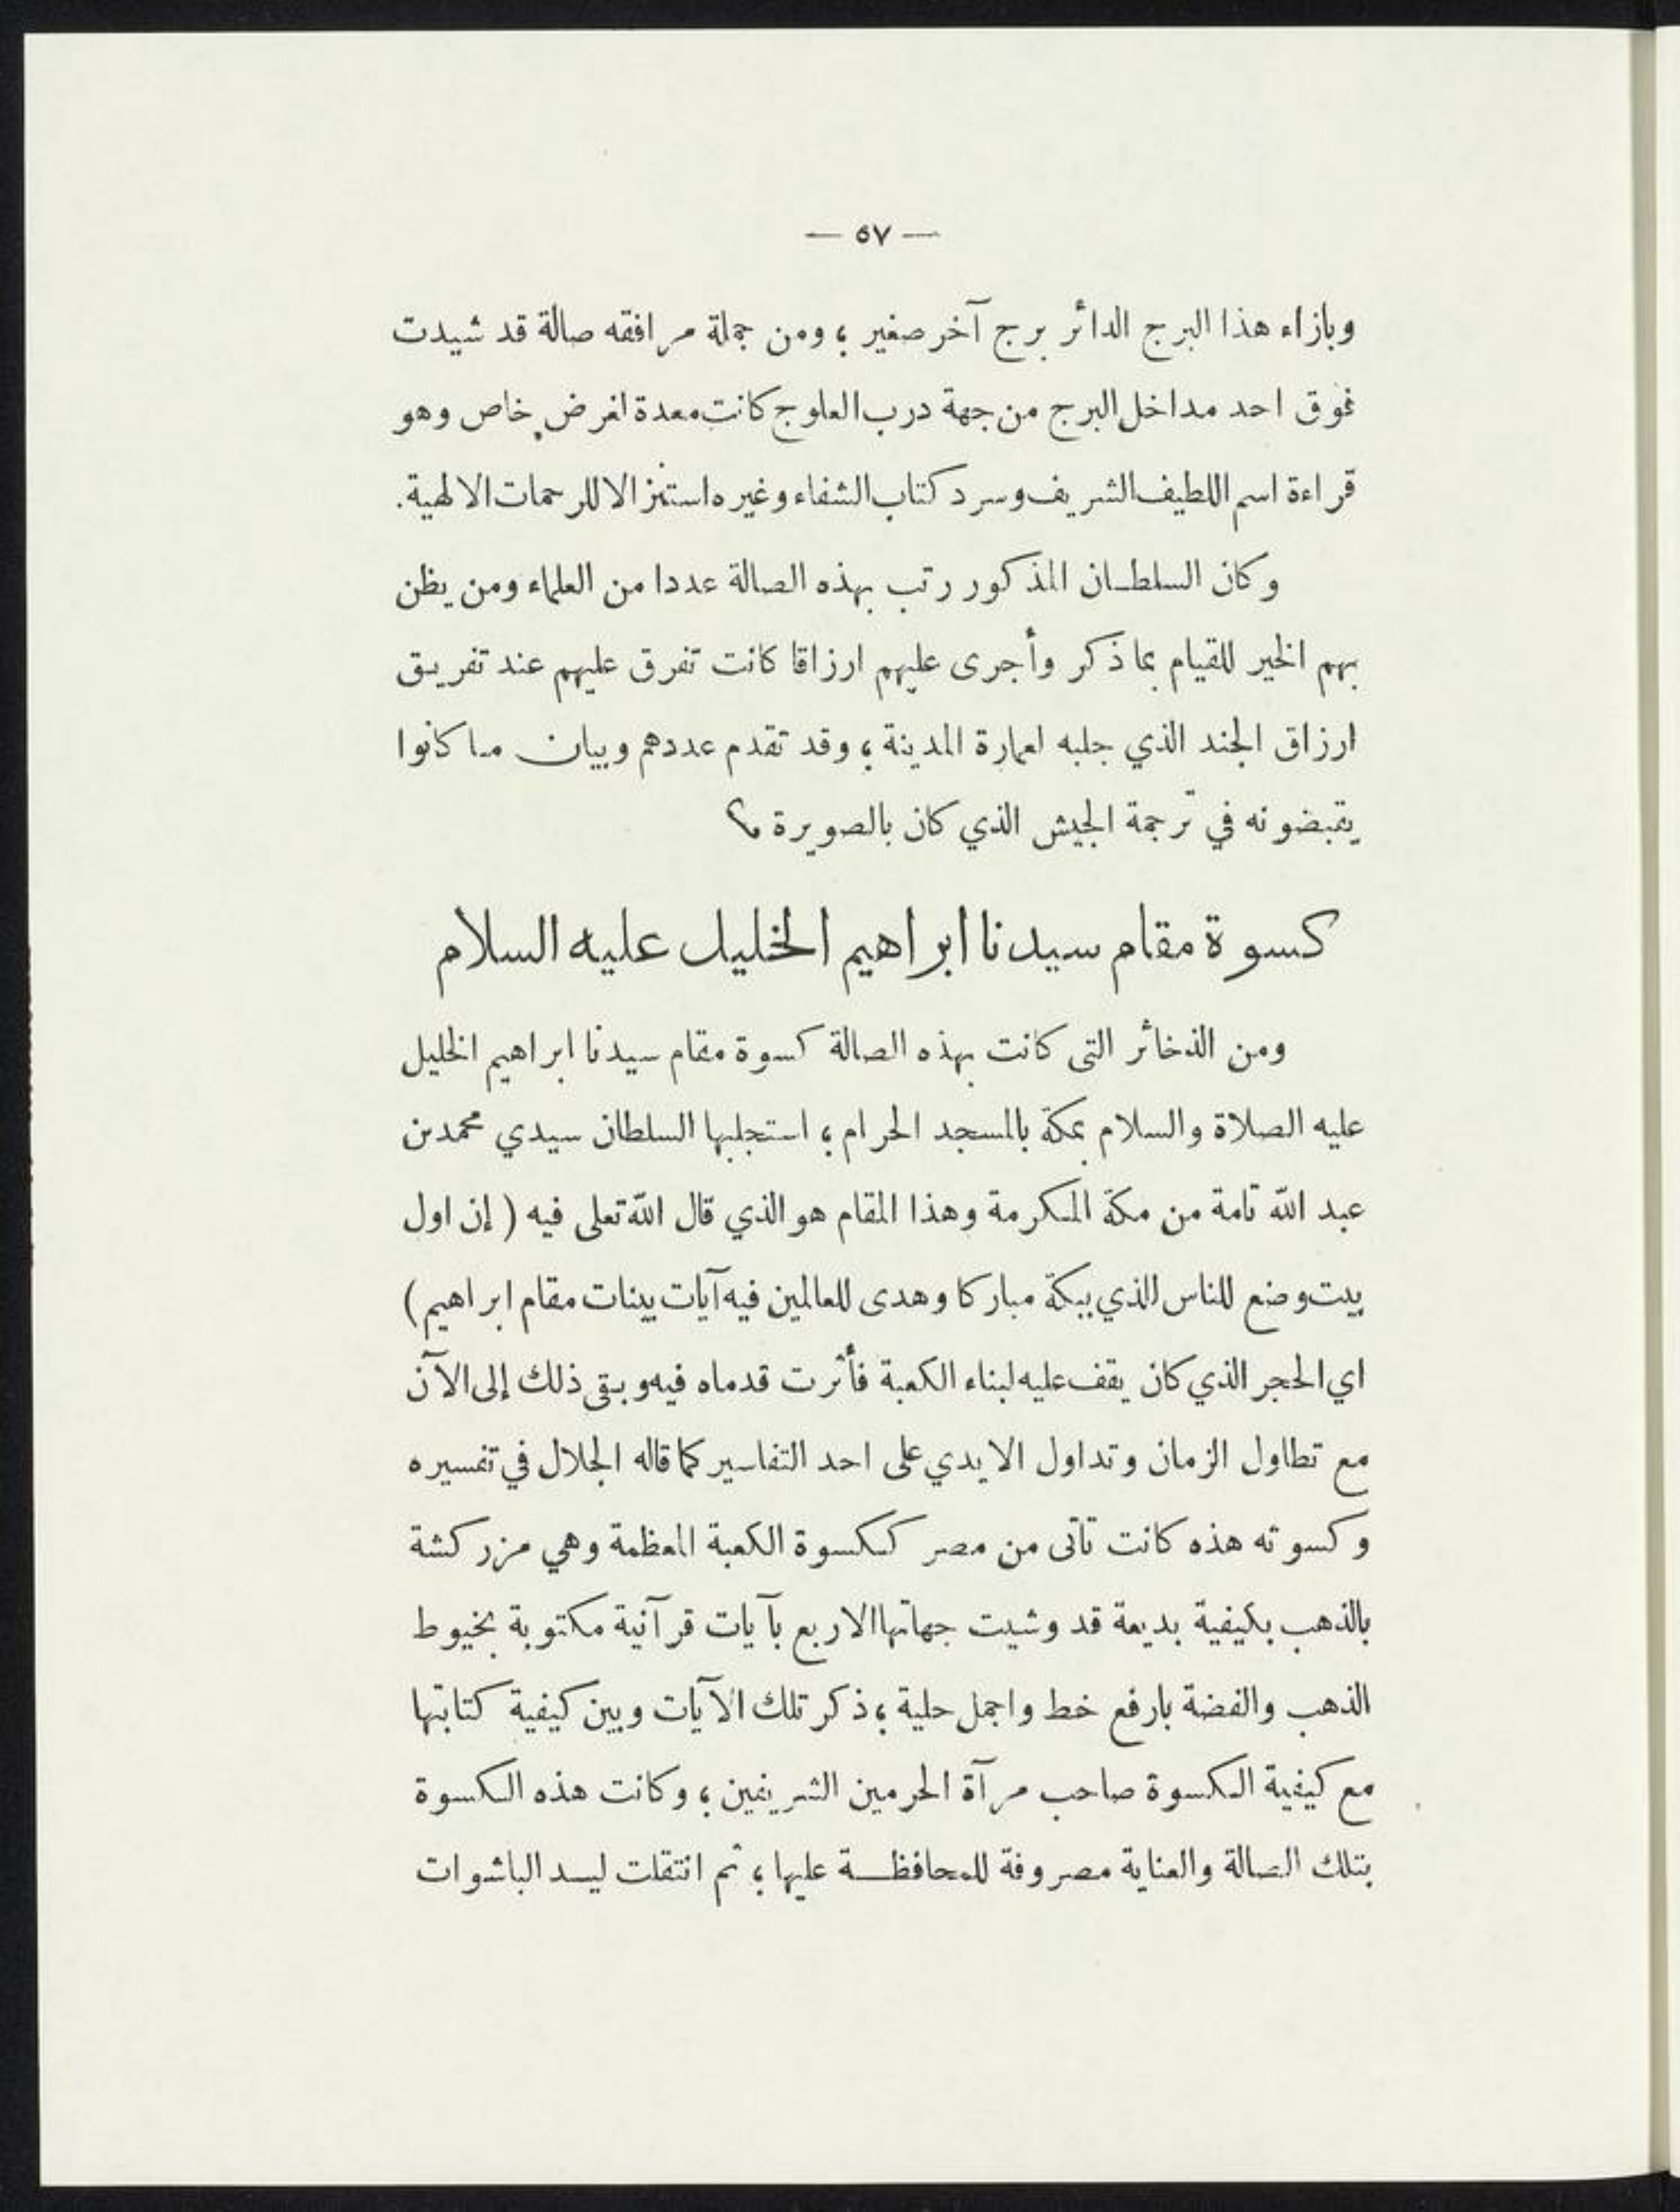 — ٥٧ —
وبازاء هذا البرج الدائر برج آخر صغير ؛ ومن جملة مرافقه صالة قد شيدت
فوق احد مداخل البرج من جهة درب العلوج كانت معدة لغرض خاص وهو
قراءة اسم اللطيف الشريف وسرد كتاب الشفاء وغيره استنزالا للرحمات الالهية.
وكان السلطان المذكور رتب بهذه الصالة عددا من العلماء ومن يظن
بهم الخير للقيام بما ذكر وأجرى عليهم ارزاقا كانت تفرق عليهم عند تفريق
ارزاق الجند الذي جلبه لعمارة المدينة ؛ وقد تقدم عددهم وبيان ما كانوا
يقبضونه في ترجمة الجيش الذي كان بالصويرة
كسوة مقام سيدنا ابراهيم الخليل عليه السلام
ومن الذخائر التى كانت بهذه الصالة كسوة مقام سيدنا ابراهيم الخليل
عليه الصلاة والسلام بمكة بالمسجد الحرام ؛ استجلبها السلطان سيدي محمد بن
عبد الله تامة من مكة المكرمة وهذا المقام هو الذي قال الله تعلى فيه ( إن اول
بيت وضع للناس للذي ببكة مباركا وهدى للعالمين فيه آيات بينات مقام ابراهيم )
اي الحجر الذي كان يقف عليه لبناء الكعبة فأثرت قدماه فيه وبقى ذلك إلى الآن
مع تطاول الزمان وتداول الايدي على احد التفاسير كما قاله الجلال في تفسيره
وكسوته هذه كانت تاتى من مصر ككسوة الكعبة المعظمة وهي مزركشة
بالذهب بكيفية بديعة قد وشيت جهاتها الاربع بآيات قرآنية مكتوبة بخيوط
الذهب والفضة بارفع خط واجمل حلية ؛ ذكر تلك الآيات وبين كيفية كتابتها
مع كيفية الكسوة صاحب مرآة الحرمين الشريفين ؛ وكانت هذه الكسوة
بتلك الصالة والعناية مصروفة للمحافظة عليها ؛ ثم انتقلت ليد الباشوات